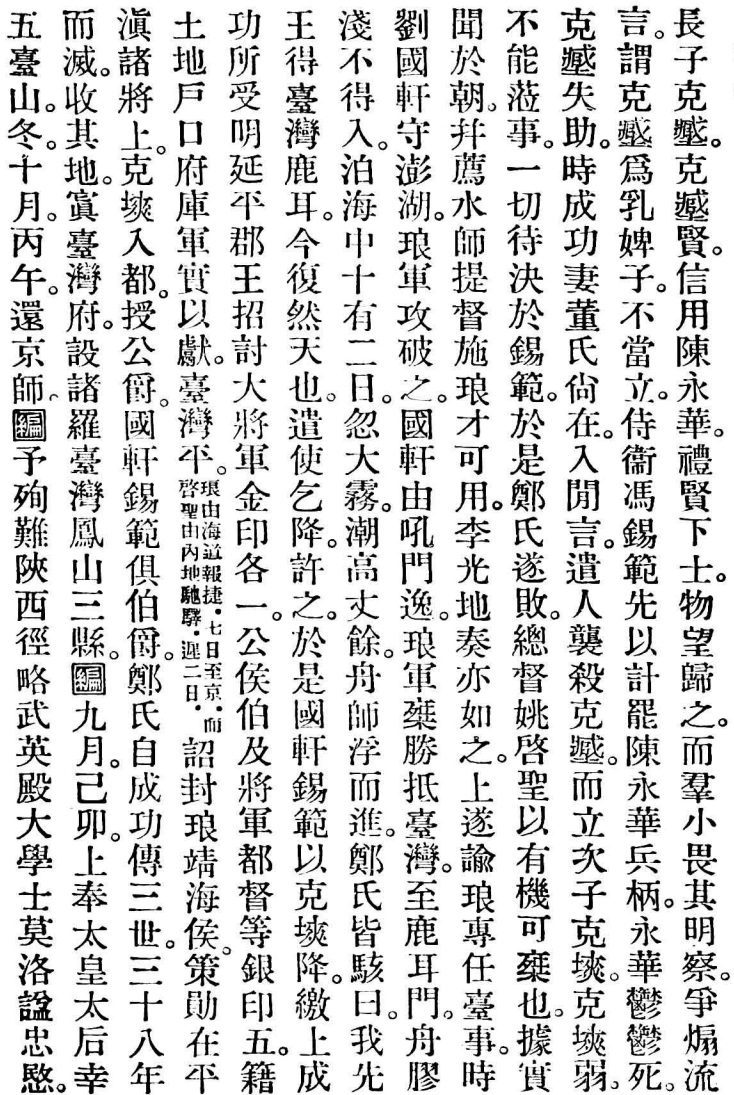 長子克𡒉。克𡒉賢。信用陳永華。禮賢下士。物望歸之。而羣小畏其明察。爭煽流
言。謂克𡒉爲乳婢子。不當立。侍衞馮錫範先以計罷陳永華兵柄。永華鬱鬱死。
克𡒉失助。時成功妻董氏尙在。入閒言。遣人襲殺克𡒉。而立次子克塽。克塽弱。
不能蒞事。一切待決於錫範。於是鄭氏遂敗。總督姚啓聖以有機可乘也。據實
聞於朝。幷薦水師提督施琅才可用。李光地奏亦如之。上遂諭琅專任臺事。時
劉國軒守澎湖。琅軍攻破之。國軒由吼門逸。琅軍乘勝抵臺灣。至鹿耳門。舟膠
淺不得入。泊海中十有二日。忽大霧。潮高丈餘。舟師浮而進。鄭氏皆駭曰。我先
王得臺灣鹿耳。今復然天也。遣使乞降。許之。於是國軒錫範以克塽降。繳上成
功所受明延平郡王招討大將軍金印各一。公侯伯及將軍都督等銀印五。籍
土地戶口府庫軍實以獻。臺灣平。琅由海道報捷。七日至京。而啓聖由內地馳驛。遲二日。詔封琅靖海侯。策勛在平
滇諸將上。克塽入都。授公爵。國軒錫範俱伯爵。鄭氏自成功傳三世。三十八年
而滅。收其地。寘臺灣府。設諸羅臺灣鳳山三縣。編九月。己卯。上奉太皇太后幸
五臺山。冬。十月。丙午。還京師。編予殉難陝西徑略武英殿大學士莫洛諡忠愍。